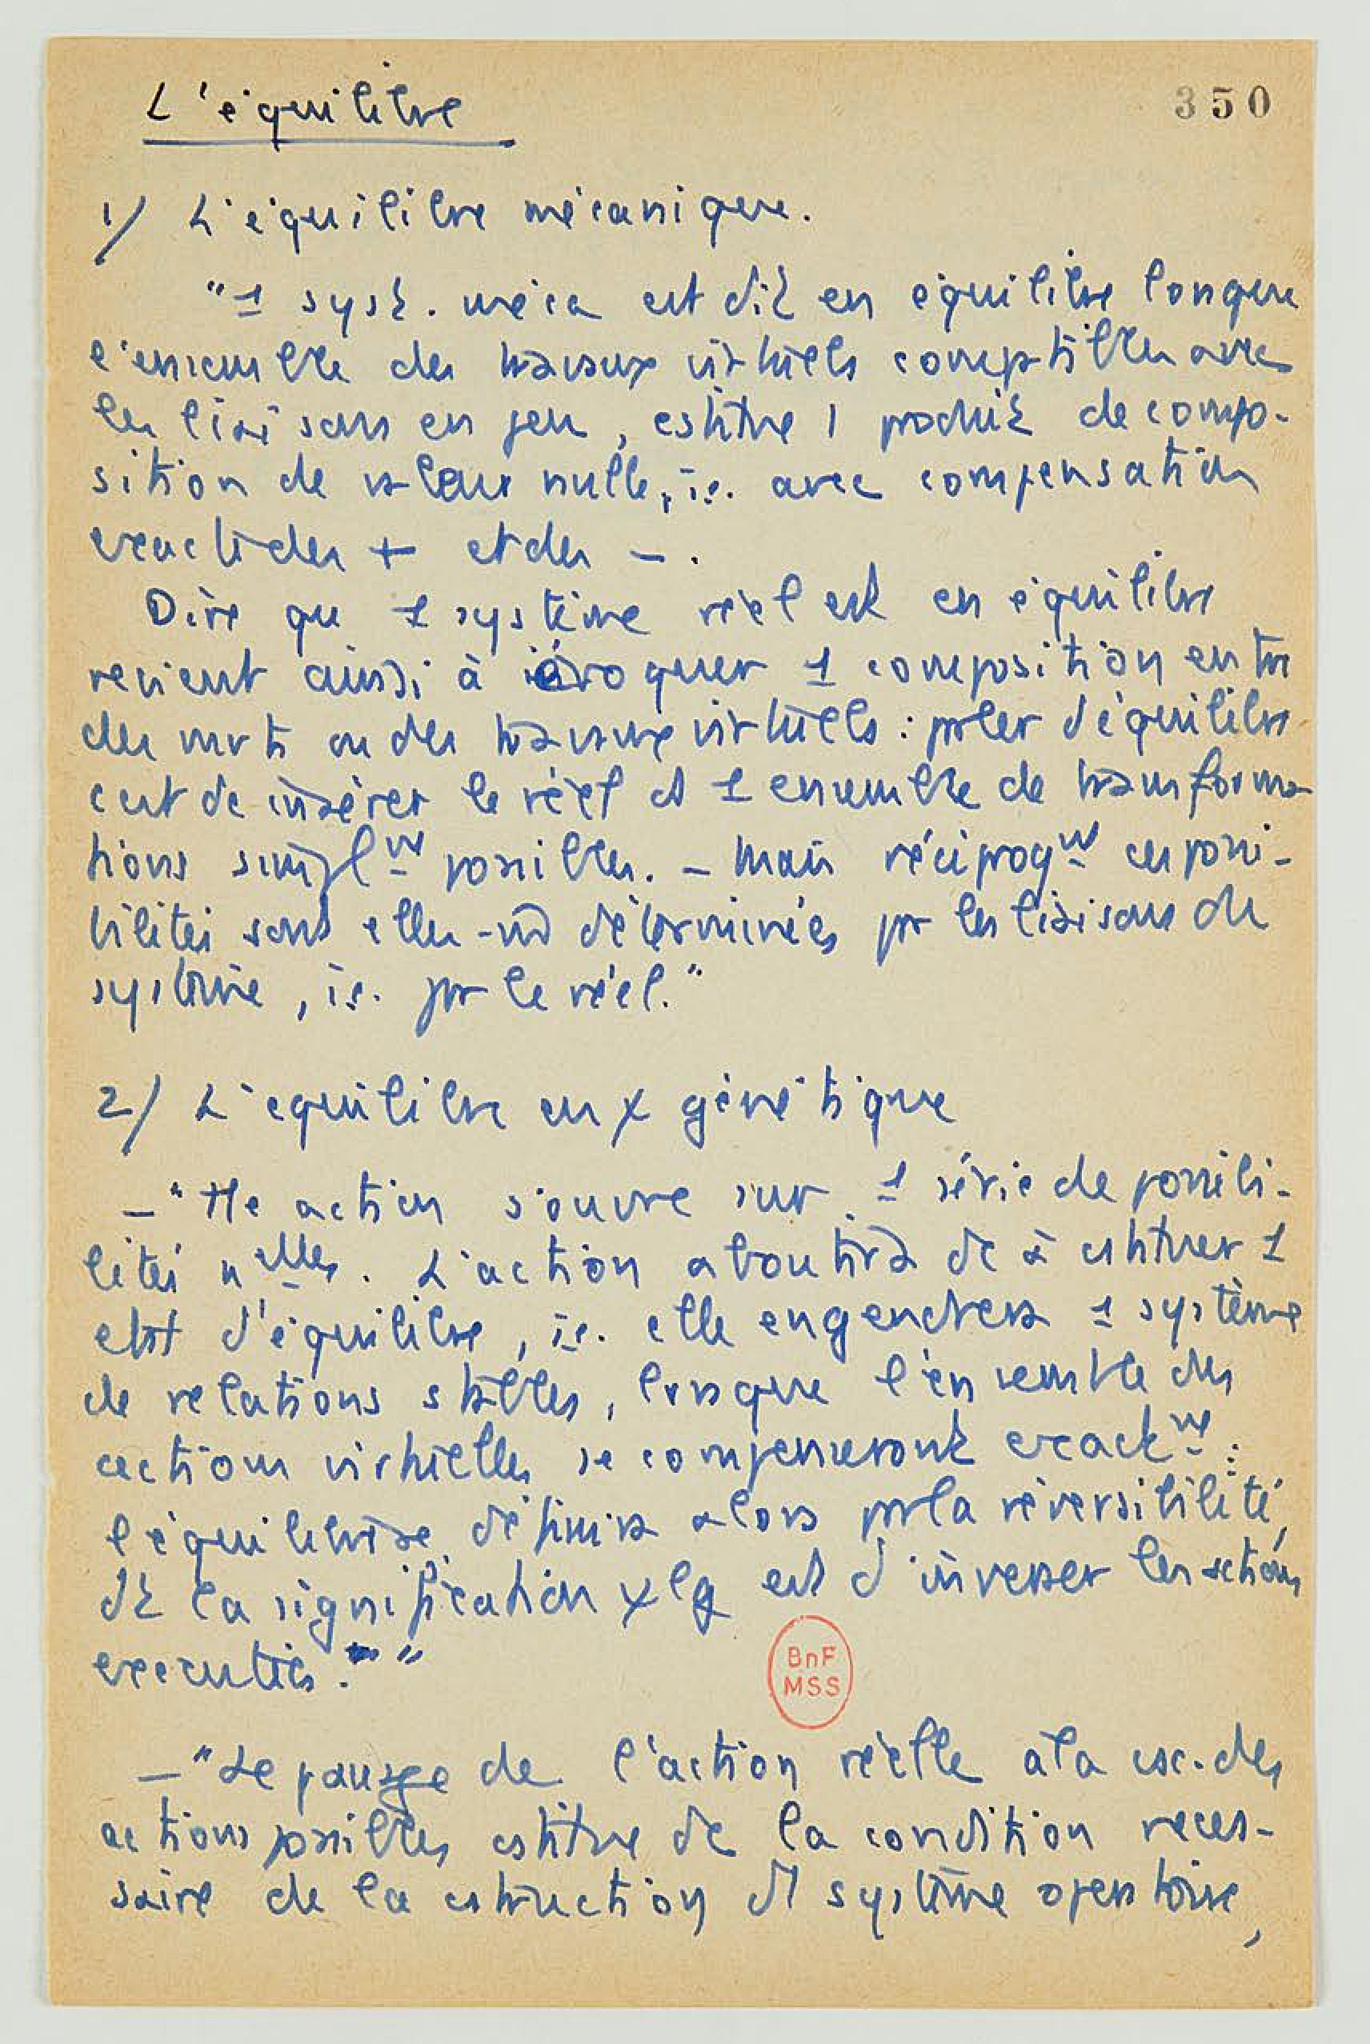 L'équilibre
350
1/ L'équilibre mécanique.
"1 syst. méca est dit en équilibre lorsque
l'ensemble des travaux virtuels comptibles avec
les liaisons en jeu, cstitue 1 produit de compo-
sition de valeur nulle, ie. avec compensation
exacte des + et des -.
Dire que 1 système réel est en équilibre
revient ainsi à évoquer 1 composition entre
des mvts ou des travaux virtuels : parler d'équilibre
c'est de insérer le réel ds 1 ensemble de transforma-
tions simplnt possibles. - Mais réciproqnt ces possi-
bilités sont elles-m̂ déterminées par les liaisons du
système, ie. par le réel."
2/ L'équilibre en χ génétique
- "Tte action s'ouvre sur 1 série de possibi-
lités nlles. L'action aboutira dc à cstituer 1
état d'équilibre, ie. elle engendrera 1 système
de relations stables, lorsque l'ensemble des
actions virtuelles se compenseront exactnt :
l'équilibre se définira alors par la réversibilité,
dt la signification χlq est d'inverser les actions
exécutées."
- "Le passage de l'action réelle à la csc. des
actions possibles cstitue dc la condition néces-
saire de la cstruction d'1 système opératoire,
BnF
MSS